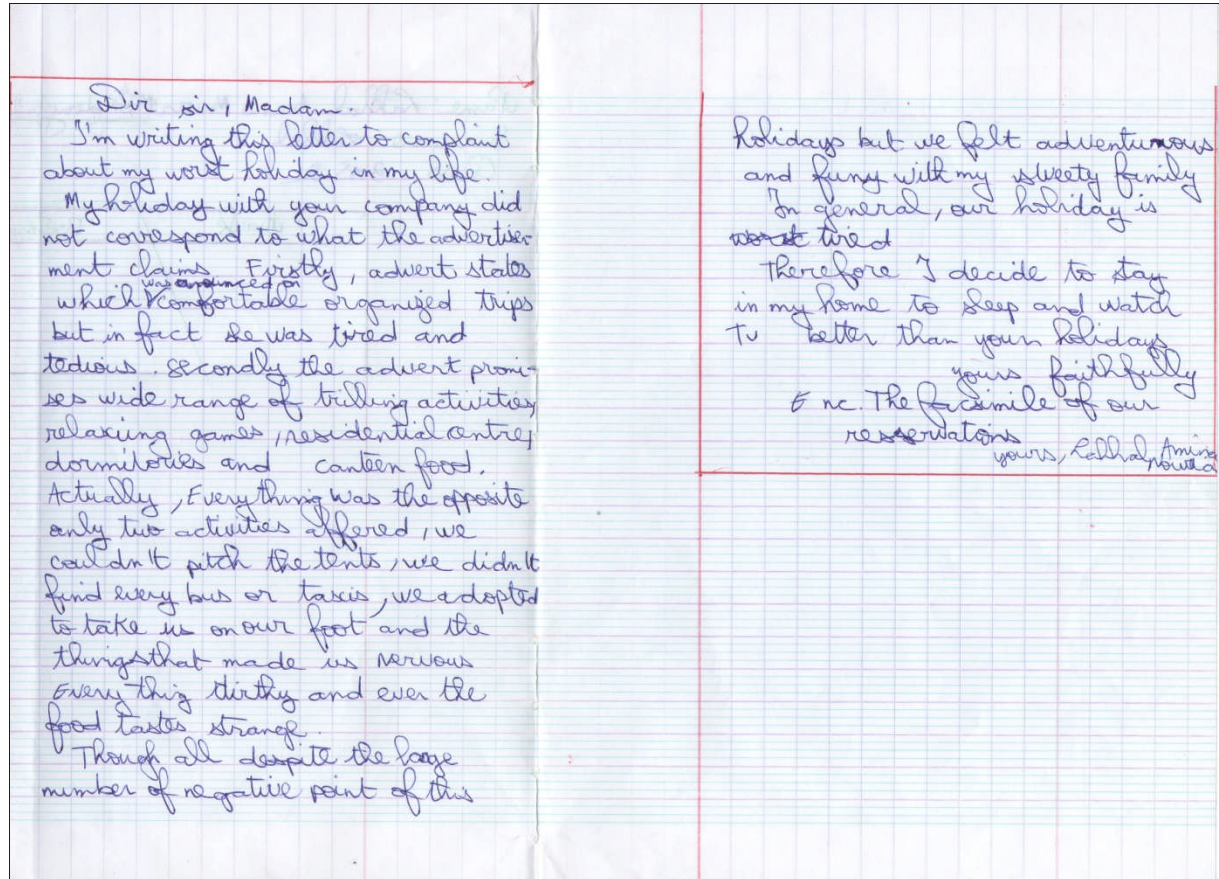 Dir sir, Madam.
I'm writing this letter to complaint
about my worst holiday in my life.
My holiday with your company did
not correspond to what the advertise-
ment claims. Firstly, advert states
which was anounced on comfortable organized trips
but in fact she was tired and
tedious. Secondly the advert promi-
ses wide range of trilling activities,
relaxing games, residential centre,
dormitories and canteen food.
Actually, Every thing was the opposite
only two activities offered, we
couldn't pitch the tents, we didn't
find every bus or taxis, we adopted
to take us on our foot and the
things that made us nervous
Every thing dirthy and even the
food tastes strange.
Though all despite the large
number of negative point of this
holidays but we felt adventurous
and funy with my sweety family
In general, our holiday is
worst tired
Therefore I decide to stay
in my home to sleep and watch
Tv better than your holidays
yours faithfully
Enc. The facsimile of our
reservations
yours, Amina